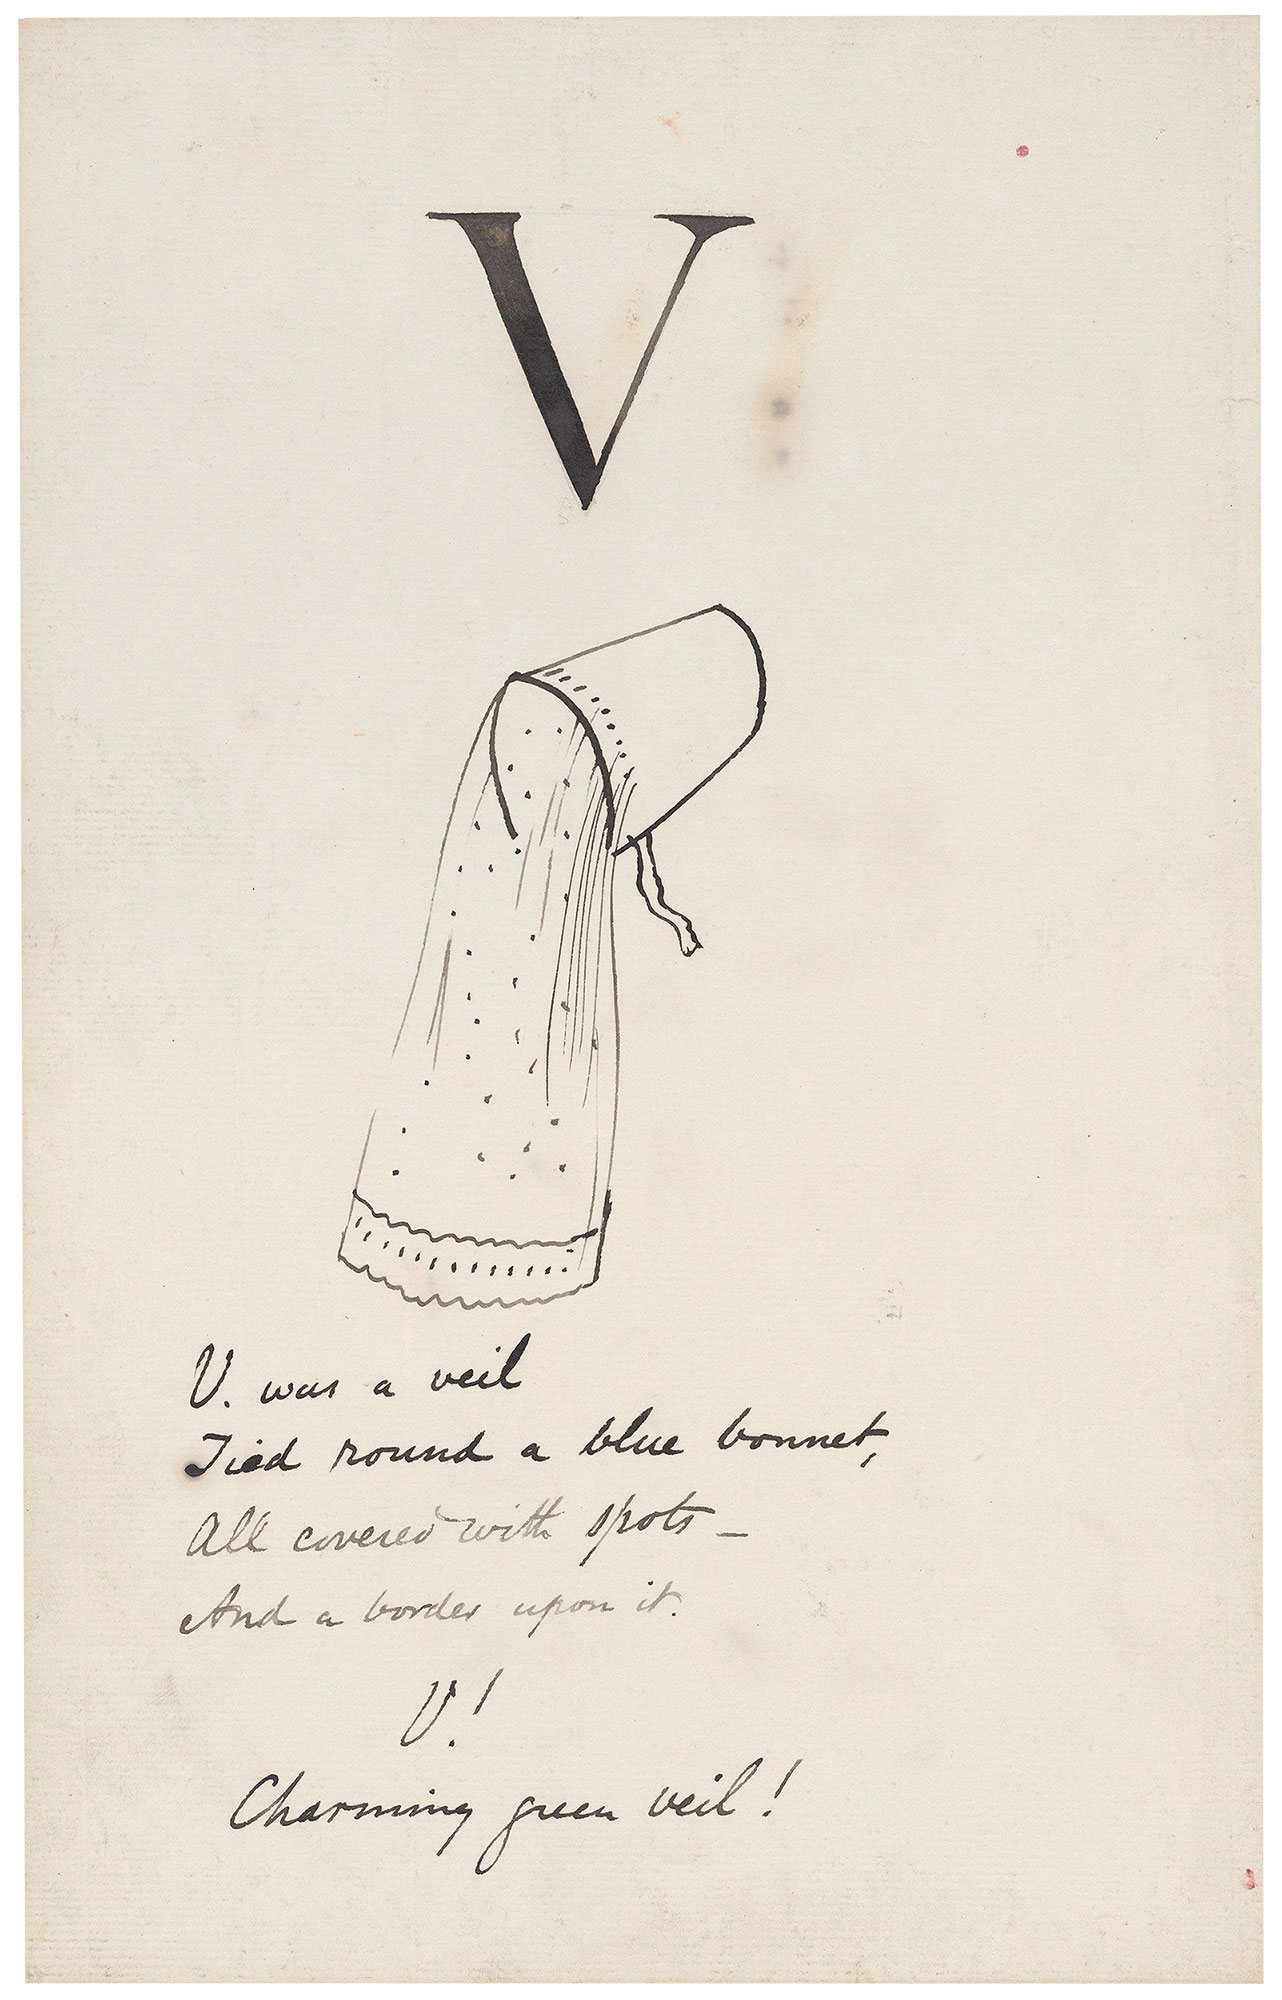 V
V. was a veil
Tied round a blue bonnet,
All covered with spots –
And a border upon it.
V!
Charming green veil!